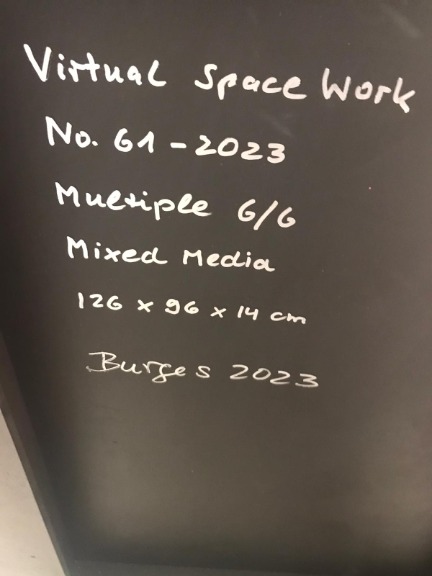 Virtual Space Work
No. 61-2023
Multiple 6/6
Mixed Media
126 x 96 x 14 cm
Burges 2023